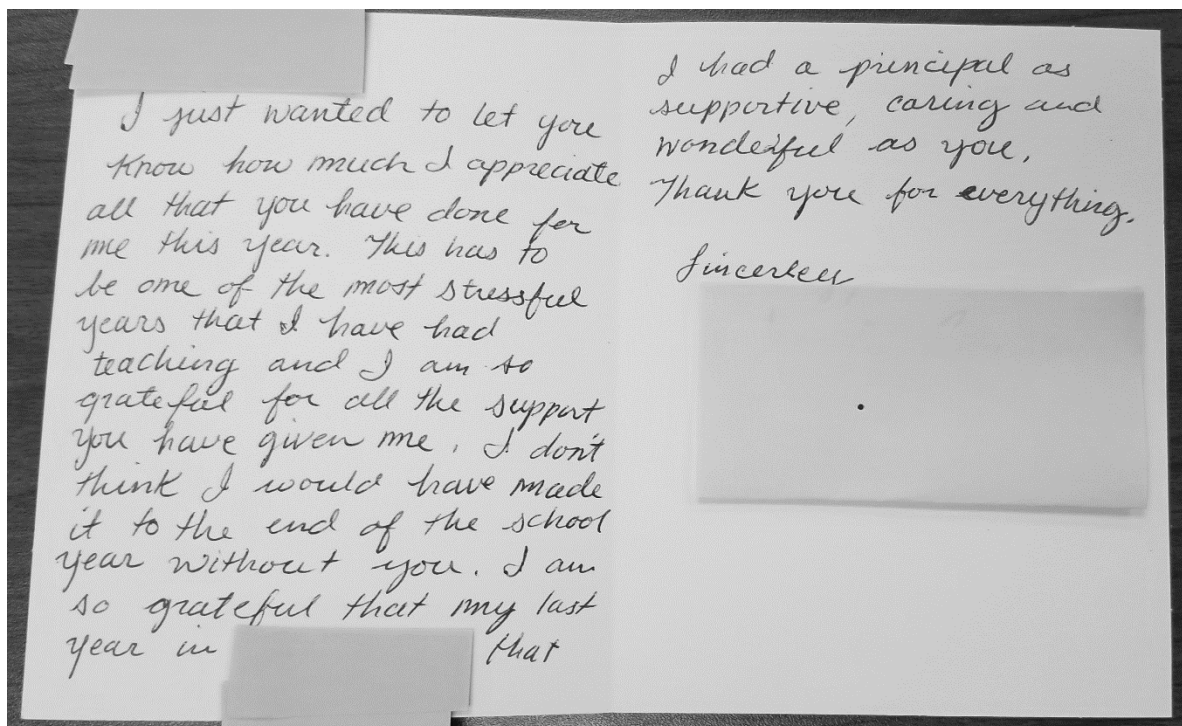 I just wanted to let you
know how much I appreciate
all that you have done for
me this year. This has to
be one of the most stressful
years that I have had
teaching and I am so
grateful for all the support
you have given me. I don't
think I would have made
it to the end of the school
year without you. I am
so grateful that my last
year in that
I had a principal as
supportive, caring and
wonderful as you.
Thank you for everything.
Sincerely